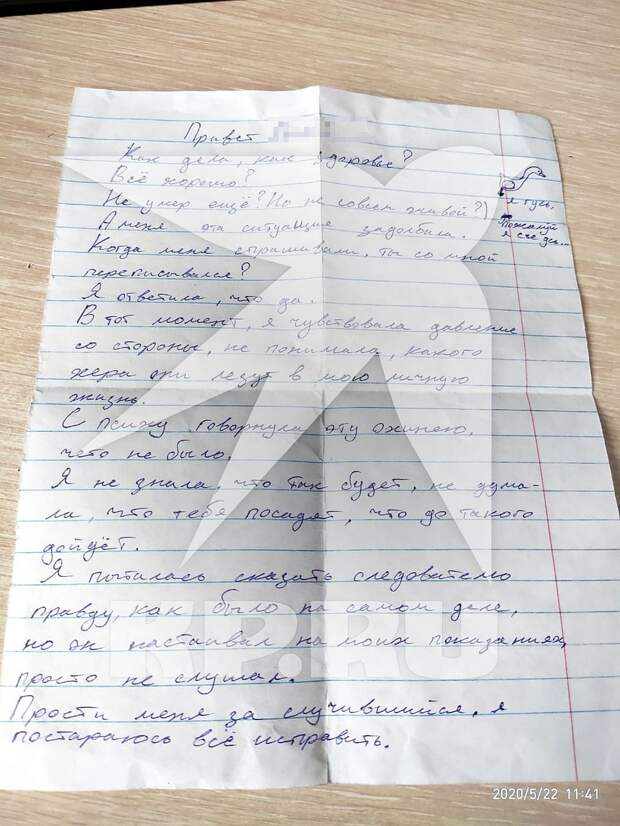 Привет
Как дела, как здоровье?
Всё хорошо?
Не умер ещё? Но не совсем живой?)
А меня эта ситуация задолбала.
Когда меня спрашивали, ты со мной
переписывался?
Я ответила, что да.
В тот момент, я чувствовала давление
со стороны, не понимала, какого
хера они лезут в мою личную
жизнь.
С психу говорнула эту ахинею,
чего не было.
Я не знала, что так будет, не дума-
ла, что тебя посадят, что до такого
дойдёт.
Я пыталась сказать следователю
правду, как было на самом деле,
но он настаивал на моих показаниях,
просто не слушал.
Прости меня за случившийся, я
постараюсь всё исправить.
я гусь.
Пожалуй
я
KP.RU
2020/5/22 11:41